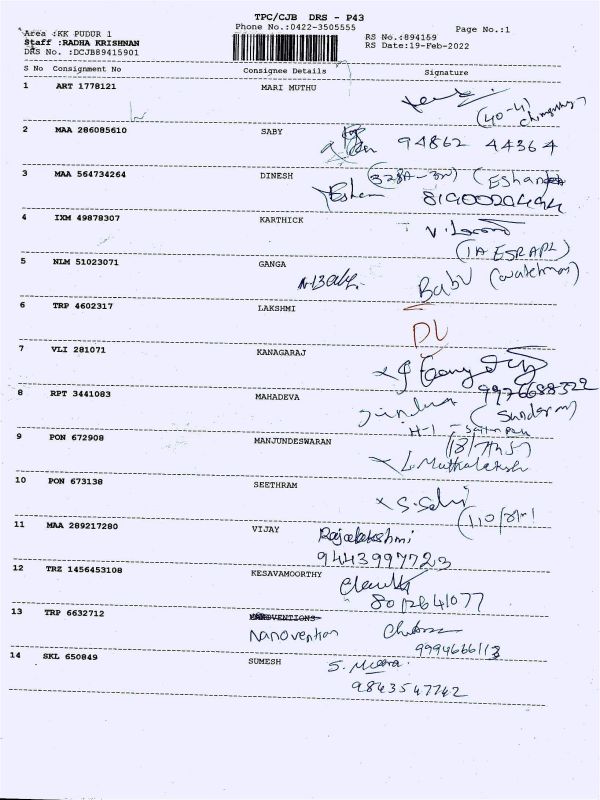 TPC/CJB DRS - P43
Area :KK PUDUR 1
Phone No.:0422-3505555
Page No.:1
Staff :RADHA KRISHNAN
RS No.:894159
DRS No. :DCJB89415901
RS Date:19-Feb-2022
S No Consignment No Consignee Details Signature
1 ART 1778121 MARI MUTHU
(40-4)
2 MAA 286085610 SABY
94862 44364
3 MAA 564734264 DINESH
(328A-3N) (Eshan
Eshan 8190020494
4 IXM 49878307 KARTHICK
(1A ESRAPL)
5 NLM 51023071 GANGA
N.Baby. Babu (watchman)
6 TRP 4602317 LAKSHMI
DL
7 VLI 281071 KANAGARAJ
9976688322
8 RPT 3441083 MAHADEVA
(Sundaram)
H-1
9 PON 672908 MANJUNDESWARAN
L.Muthulakshmi
10 PON 673138 SEETHRAM
x S.Selvi
(110/8H-1
11 MAA 289217280 VIJAY
Rajalakshmi
9443997723
12 TRZ 1456453108 KESAVAMOORTHY
8012641077
13 TRP 6632712 NANOVENTIONS
Nanovention Chitra
9994666113
14 SKL 650849 SUMESH
S. Meera.
9843547742